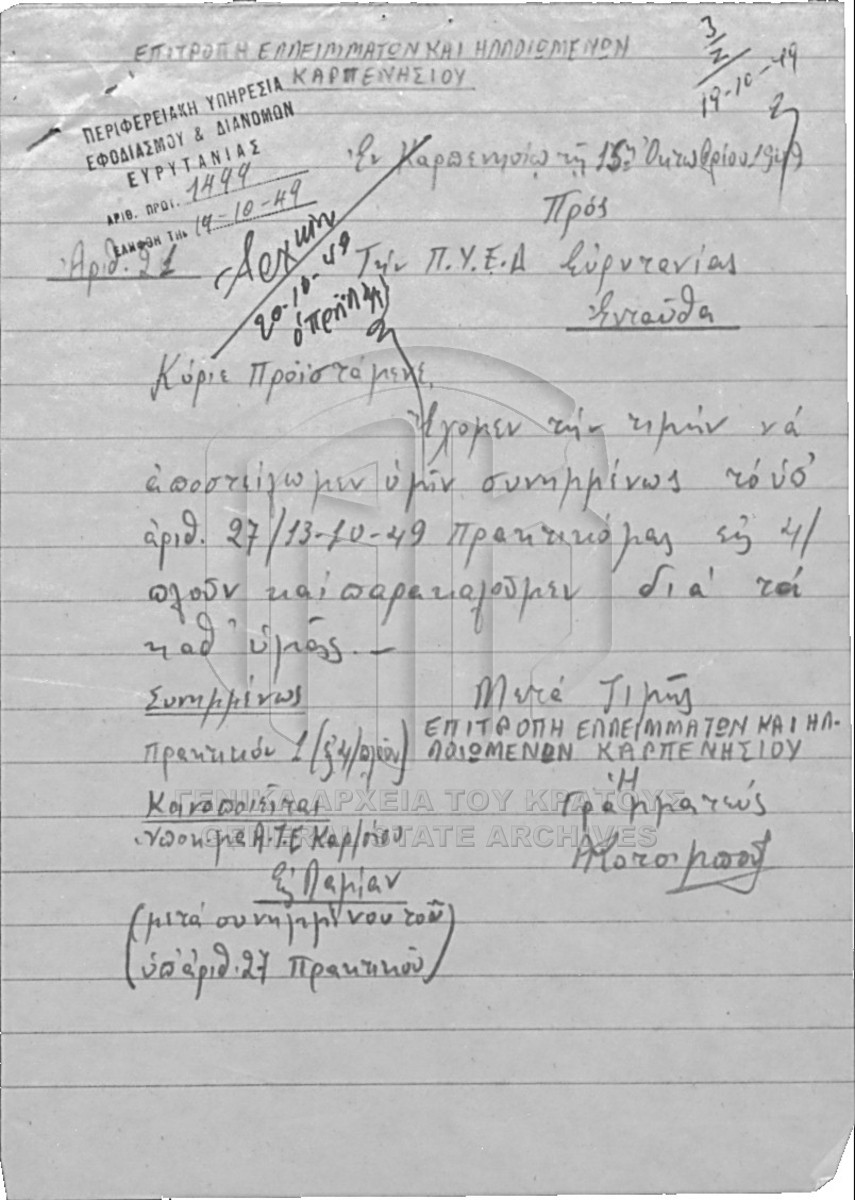 ΕΠΙΤΡΟΠΗ ΕΛΛΕΙΜΜΑΤΩΝ ΚΑΙ ΗΛΛΟΙΩΜΕΝΩΝ
ΚΑΡΠΕΝΗΣΙΟΥ
3/2
19-10-49
ΠΕΡΙΦΕΡΕΙΑΚΗ ΥΠΗΡΕΣΙΑ
ΕΦΟΔΙΑΣΜΟΥ & ΔΙΑΝΟΜΩΝ
ΕΥΡΥΤΑΝΙΑΣ
ΑΡΙΘ. ΠΡΩΤ. 1499
ΕΛΗΦΘΗ ΤΗΝ 19-10-49
Ἐν Καρπενησίῳ τῇ 15ῃ Ὀκτωβρίου 1949
Πρός
Ἀριθ. 21
Τήν Π.Υ.Ε.Δ Εὐρυτανίας
Ἐνταῦθα
20-10-49
Κύριε Προϊστάμενε,
Ἔχομεν τήν τιμήν νά
ἀποστείλωμεν ὑμῖν συνημμένως τό ὑπ'
ἀριθ. 27/13-10-49 Πρακτικό μας εἰς 4/
πλοῦν καί παρακαλοῦμεν διά τά
καθ' ὑμᾶς. —
Συνημμένως
Πρακτικόν 1 (εἰς 4/πλοῦν)
Μετά Τιμῆς
ΕΠΙΤΡΟΠΗ ΕΛΛΕΙΜΜΑΤΩΝ ΚΑΙ ΗΛ-
ΛΟΙΩΜΕΝΩΝ ΚΑΡΠΕΝΗΣΙΟΥ
Ἡ
Γραμματεύς
Κοινοποιεῖται
Ὑποκ-μα Α.Τ.Ε Καρ/σίου
Εἰς Λαμίαν
(μετά συνημμένου τοῦ
ὑπ' ἀριθ. 27 Πρακτικοῦ)
ΓΕΝΙΚΑ ΑΡΧΕΙΑ ΤΟΥ ΚΡΑΤΟΥΣ
GENERAL STATE ARCHIVES